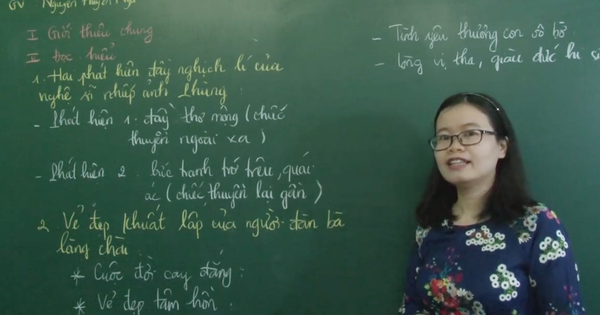 GV Nguyễn Huyền Nga
I Giới thiệu chung
II Đọc hiểu
1. Hai phát hiện đầy nghịch lí của
nghệ sĩ nhiếp ảnh Phùng:
- Phát hiện 1: đầy thơ mộng (chiếc
thuyền ngoài xa)
- Phát hiện 2: bức tranh trớ trêu, quái
ác (chiếc thuyền lại gần)
2. Vẻ đẹp khuất lấp của người đàn bà
làng chài
* Cuộc đời cay đắng:
* Vẻ đẹp tâm hồn:
- Tình yêu thương con vô bờ
- Lòng vị tha, giàu đức hi